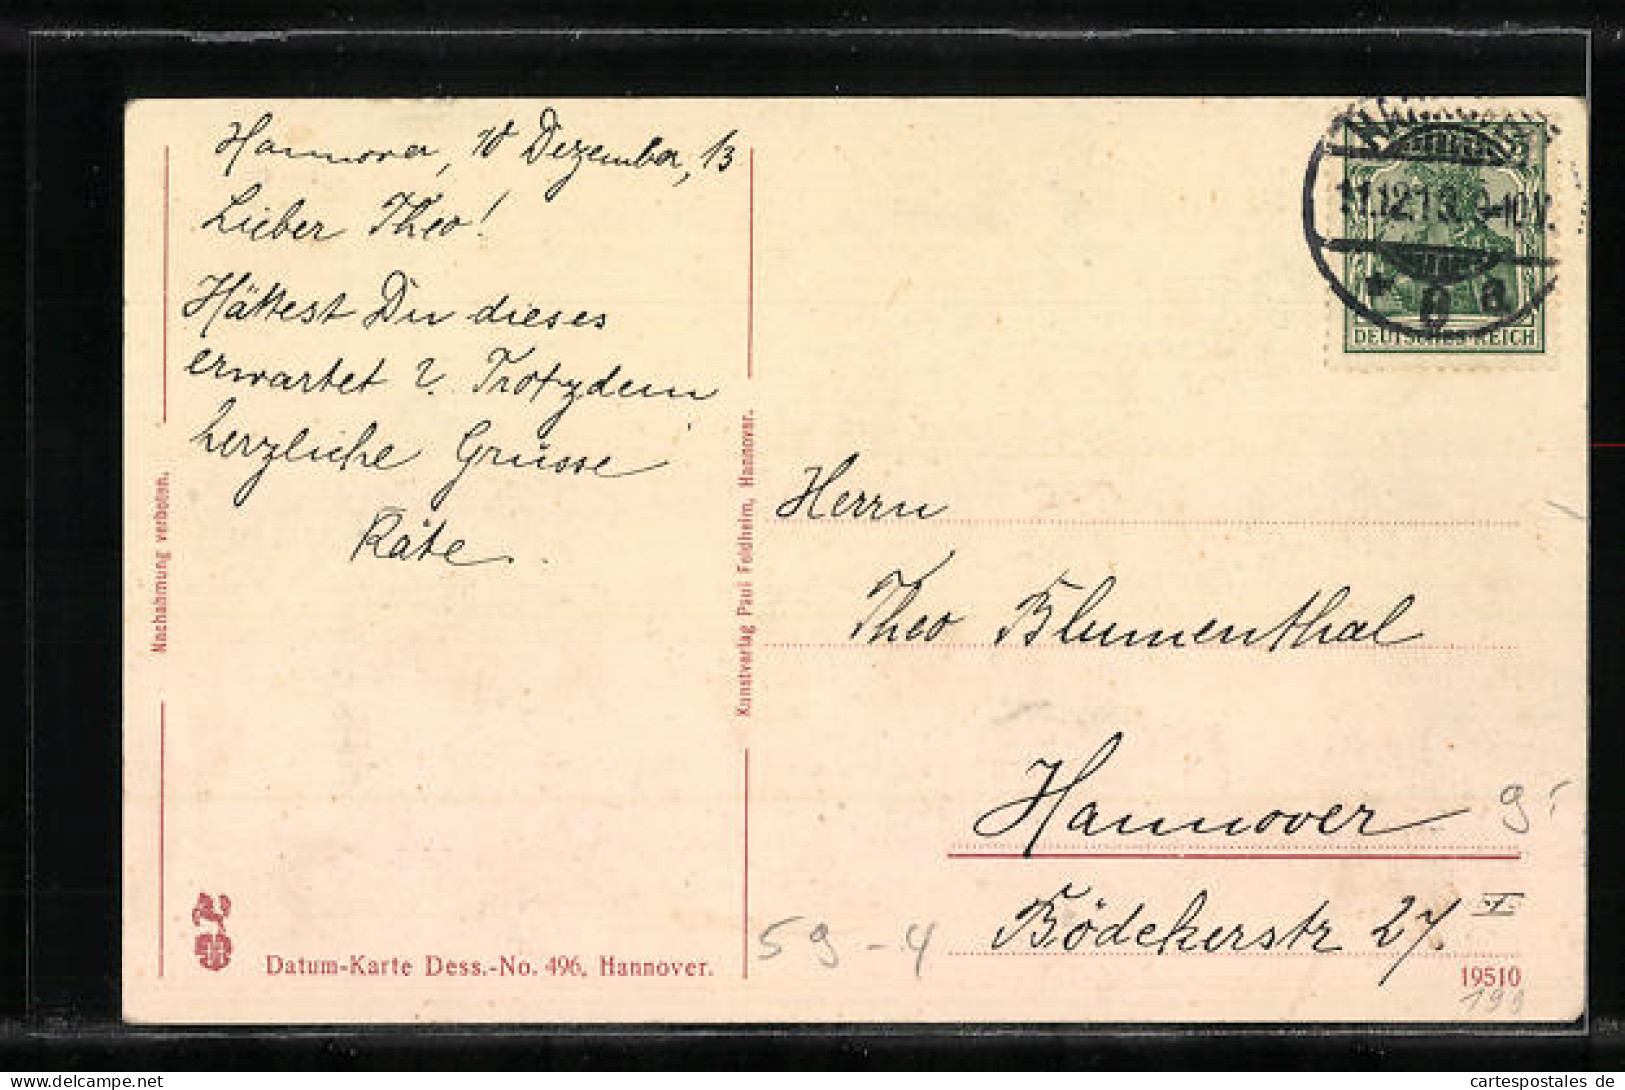 Hannover, 10 Dezember, 13
Lieber Theo!
Hättest Du dieses
erwartet? Trotzdem
herzliche Grüsse
Käte.
Nachahmung verboten.
Kunstverlag Paul Feldheim, Hannover.
Datum-Karte Dess.-No. 496, Hannover.
11.12.13. 9-10V.
* 9 a
DEUTSCHES REICH
Herrn
Theo Blumenthal
Hannover
Bödekerstr 27. I
59-4
19510
199
cartes-postales-delcampe.net
cartespostales de